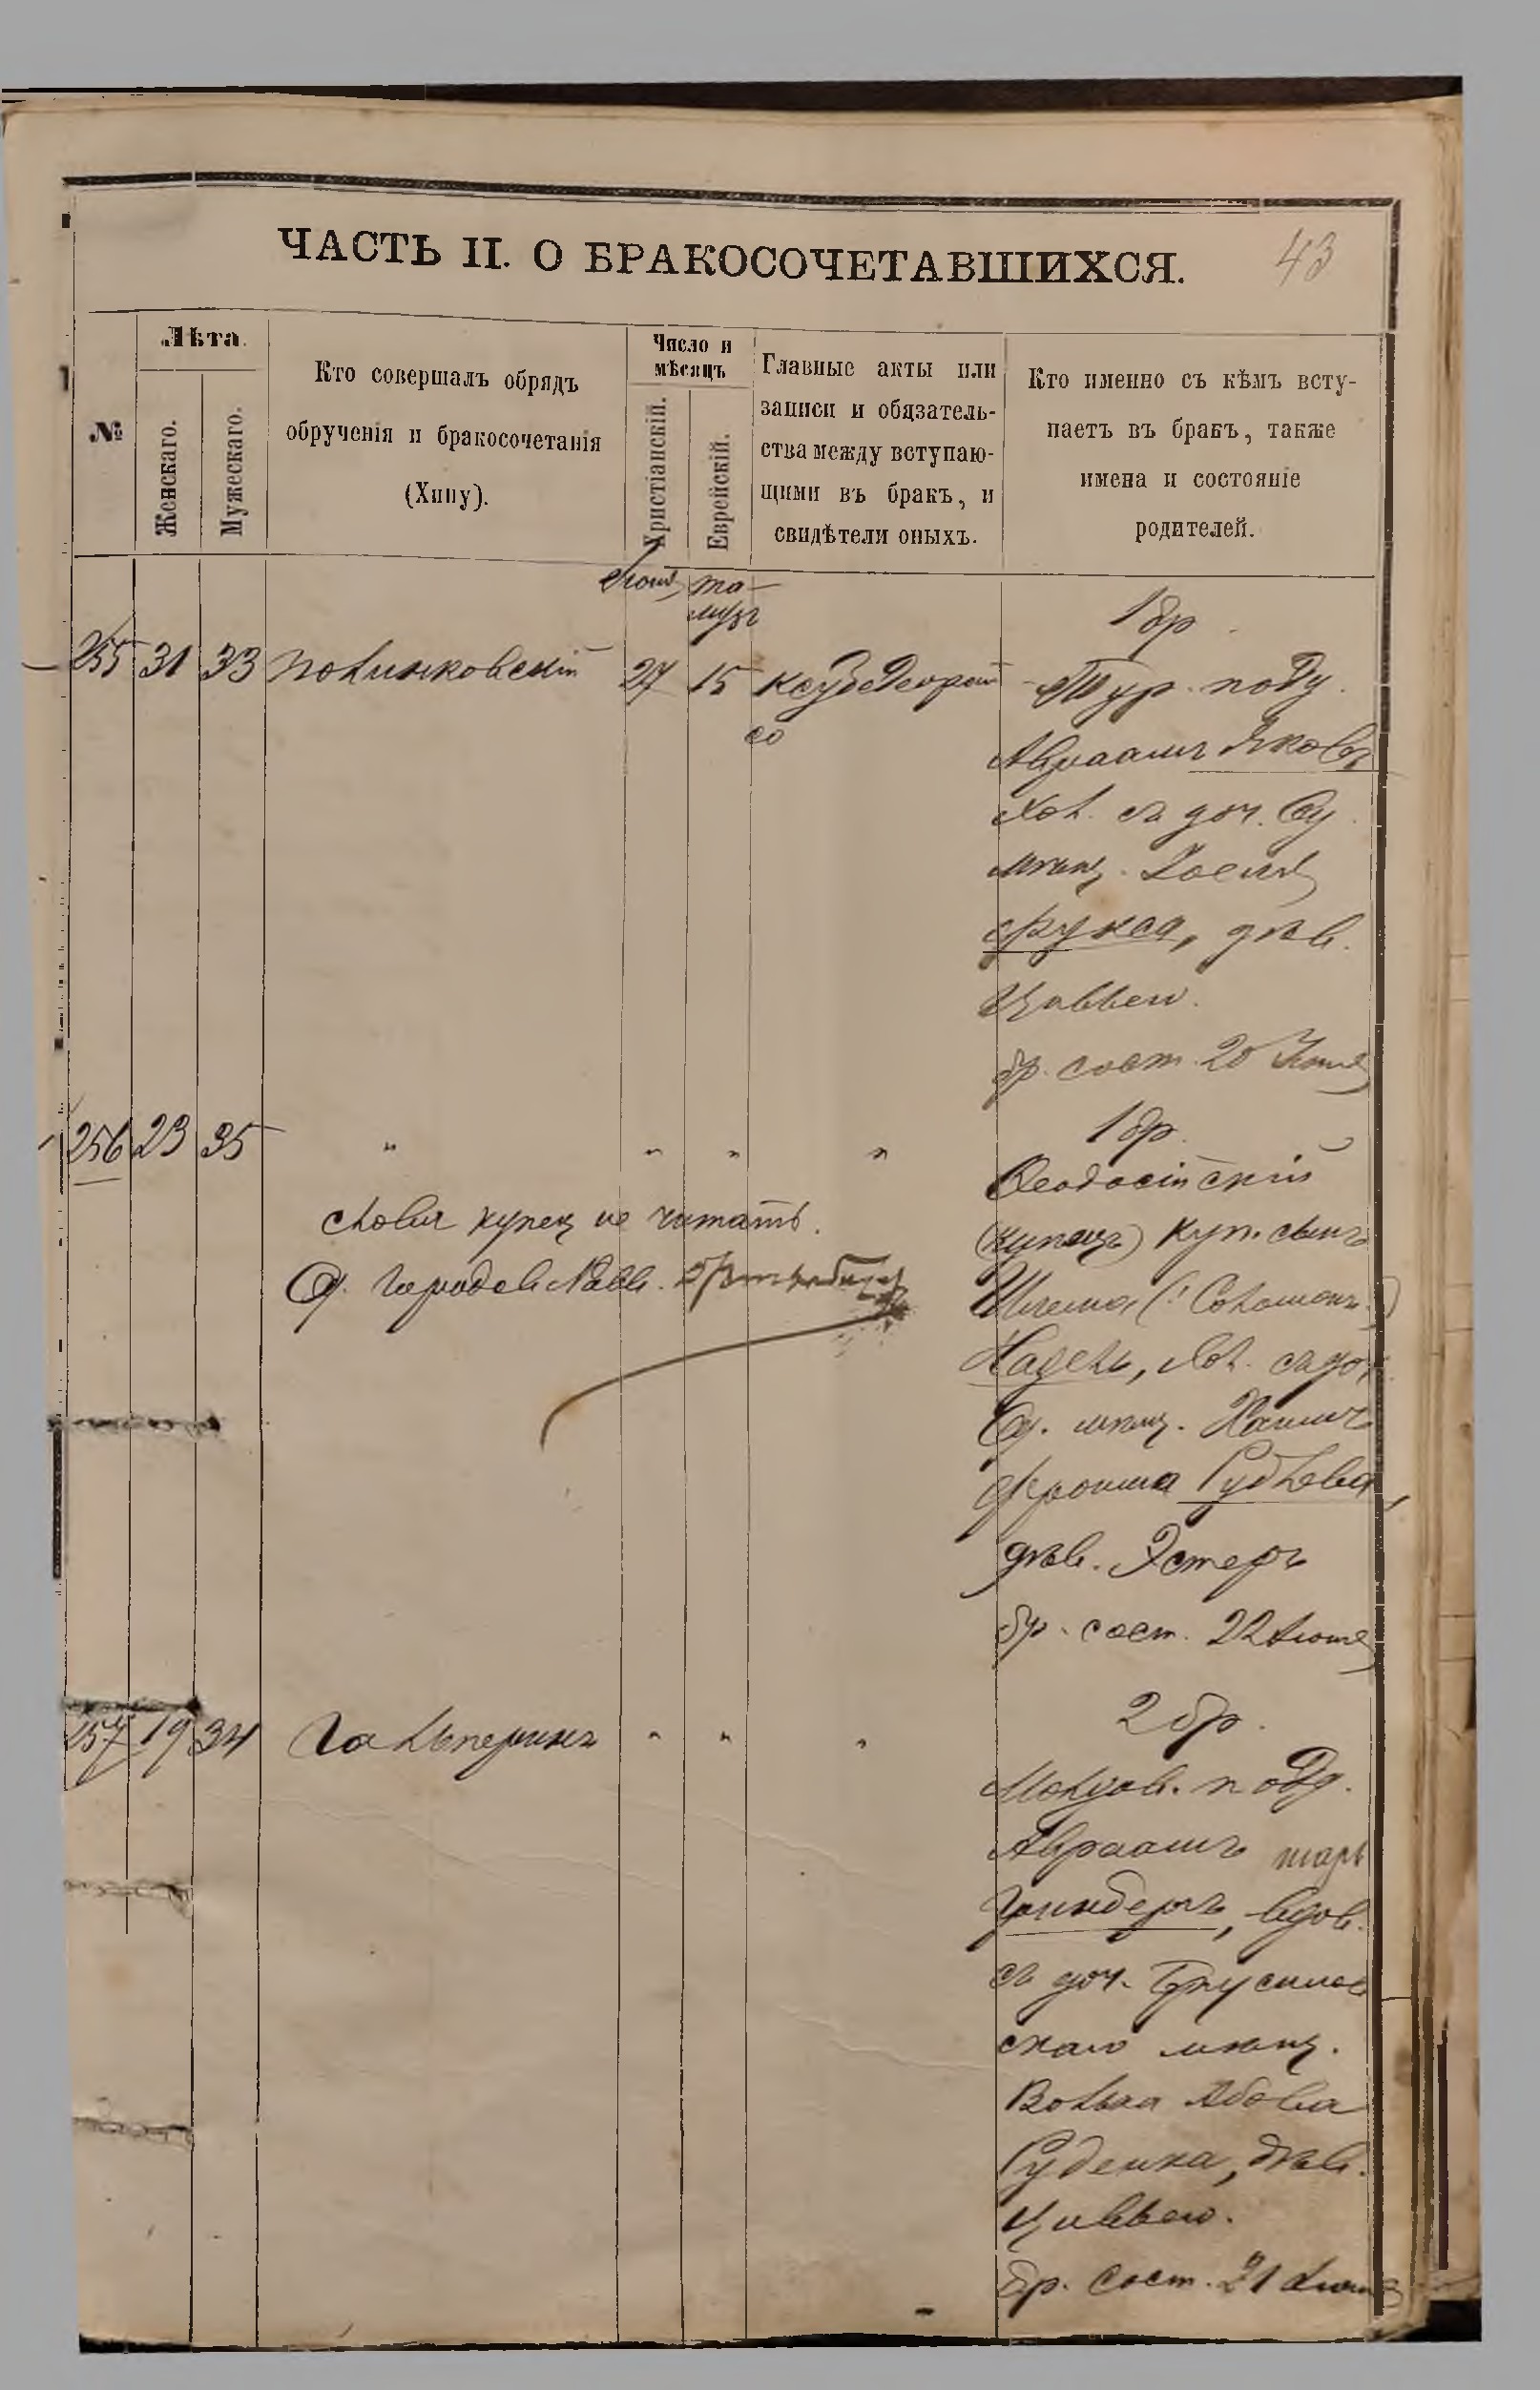 ЧАСТЬ II. О БРАКОСОЧЕТАВШИХСЯ.
43
№
Лѣта.
Женскаго.
Мужескаго.
Кто совершалъ обрядъ
обрученія и бракосочетанія
(Хипу).
Число и
мѣсяцъ
Христіанскій.
Еврейскій.
Главные акты или
записи и обязатель-
ства между вступаю-
щими въ бракъ, и
свидѣтели оныхъ.
Кто именно съ кѣмъ всту-
паетъ въ бракъ, также
имена и состояніе
родителей.
Іюня та-
музъ
255 31 33 Полинковскій 27 15
1 бр.
Тур. подд.
Авраамъ Яковъ
хол. съ доч. Од.
мѣщ. Іосия
Фукса, дѣв.
Цивьею.
бр. сост. 20 Іюня
256 23 35 " " " "
1 бр.
Ѳеодосійскій
(купецъ) куп. сынъ
Шлема (: Соломонъ :)
Кадель, хол. съ доч.
Од. мѣщ. Хаима
Фроима Рублева,
дѣв. Эстеръ
бр. сост. 22 Іюня
слово купец не читать.
О. Городов. Равв.
257 19 34 Гальперинъ " " "
2 бр.
Молдов. подд.
Авраамъ
Гринбергъ, вдов.
съ доч.
скаго мѣщ.
Волька Абова
Руденка, дѣв.
Цивьею.
бр. сост. 21 Іюня